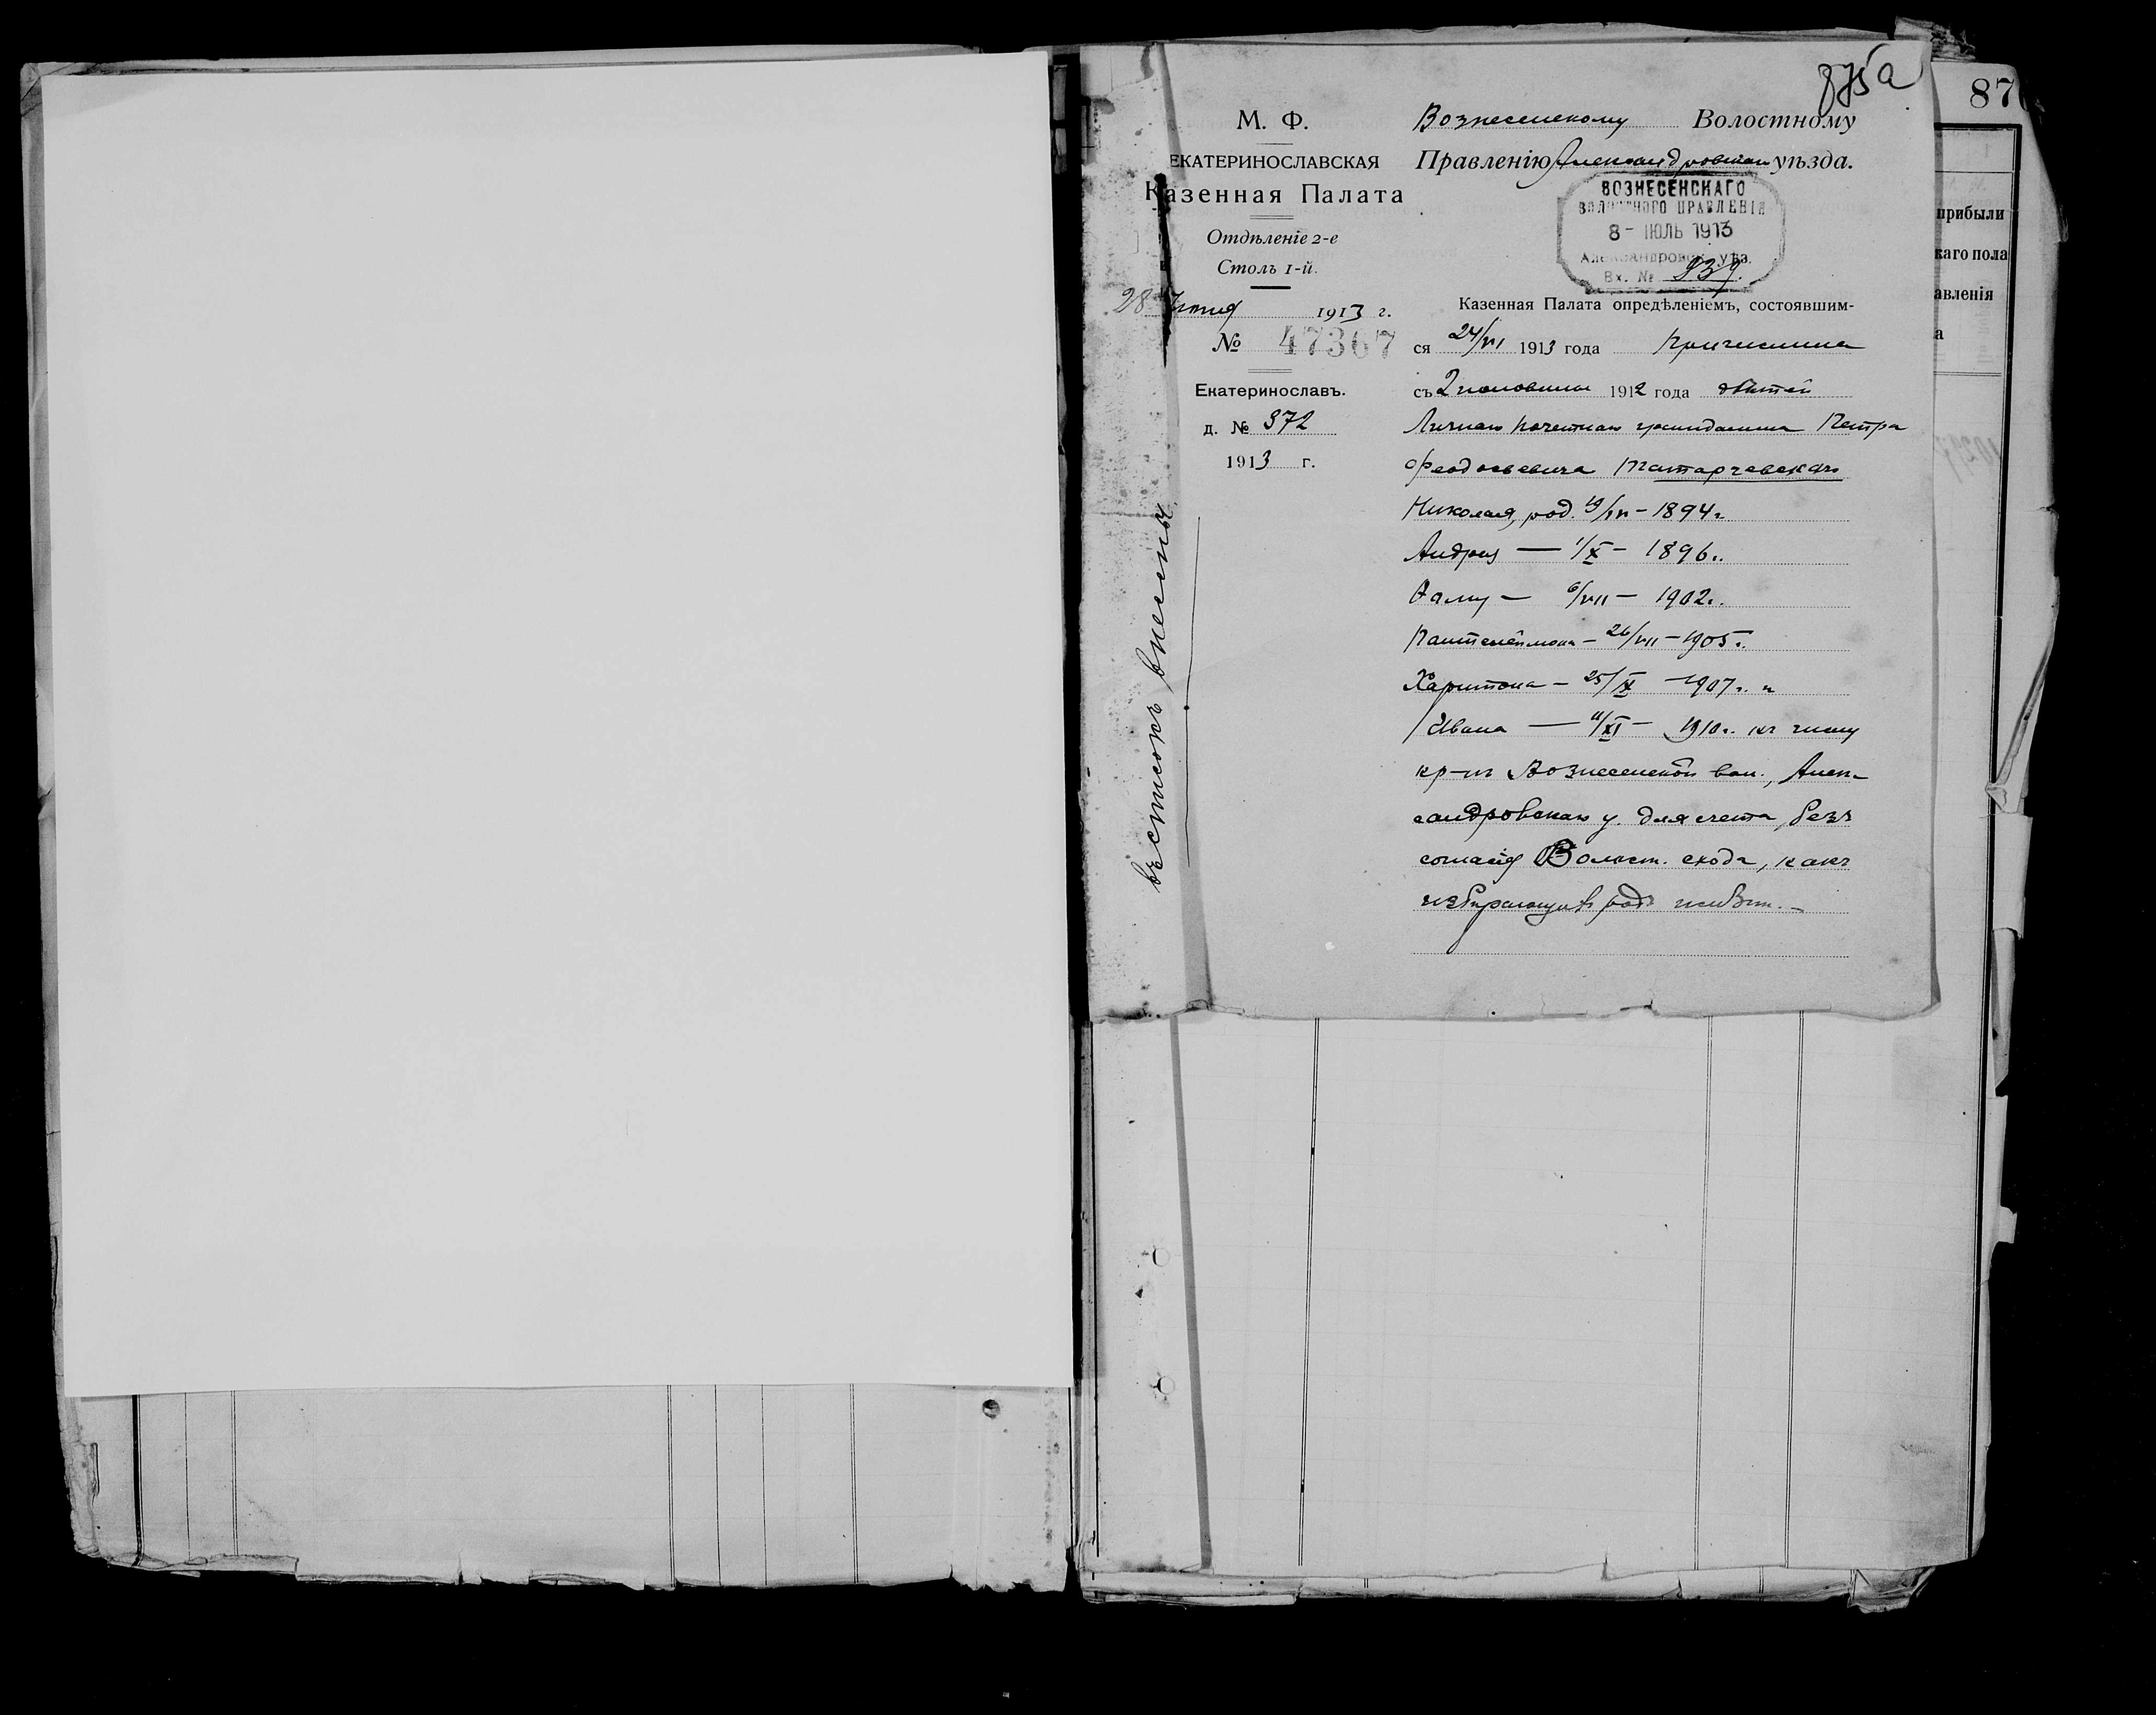 875а
87
М. Ф.
ЕКАТЕРИНОСЛАВСКАЯ
Казенная Палата
Отдѣленіе 2-е
Столъ 1-й.
28 Іюня 1913 г.
№ 47367
Екатеринославъ.
д. № 372
1913 г.
въ списокъ внесены
Вознесенскому Волостному
Правленію Александровскаго уѣзда.
ВОЗНЕСЕНСКАГО
ВОЛОСТНОГО ПРАВЛЕНІЯ
8 - ІЮЛЬ 1913
Александровск. уѣз.
Вх. № 939.
Казенная Палата опредѣленіемъ, состоявшим-
ся 24/VI 1913 года причислила
съ 2 половины 1912 года дѣтей
Личнаго почетнаго гражданина Петра
Феодосьевича Татарчевскаго
Николая, род. 1894 г.
Андрея — 1/X — 1896 г.
Фому — 6/VII — 1902 г.
Пантелеймона — 26/VII — 1905 г.
Харитона — 25/IX — 1907 г. и
Ивана — 11/XI — 1910 г. къ числу
кр-нъ Вознесенской вол., Алек-
сандровскаго у. для счета, безъ
согласія Волостн. схода, какъ
избирающихъ родъ жизни. —
прибыли
каго пола
авленія
а